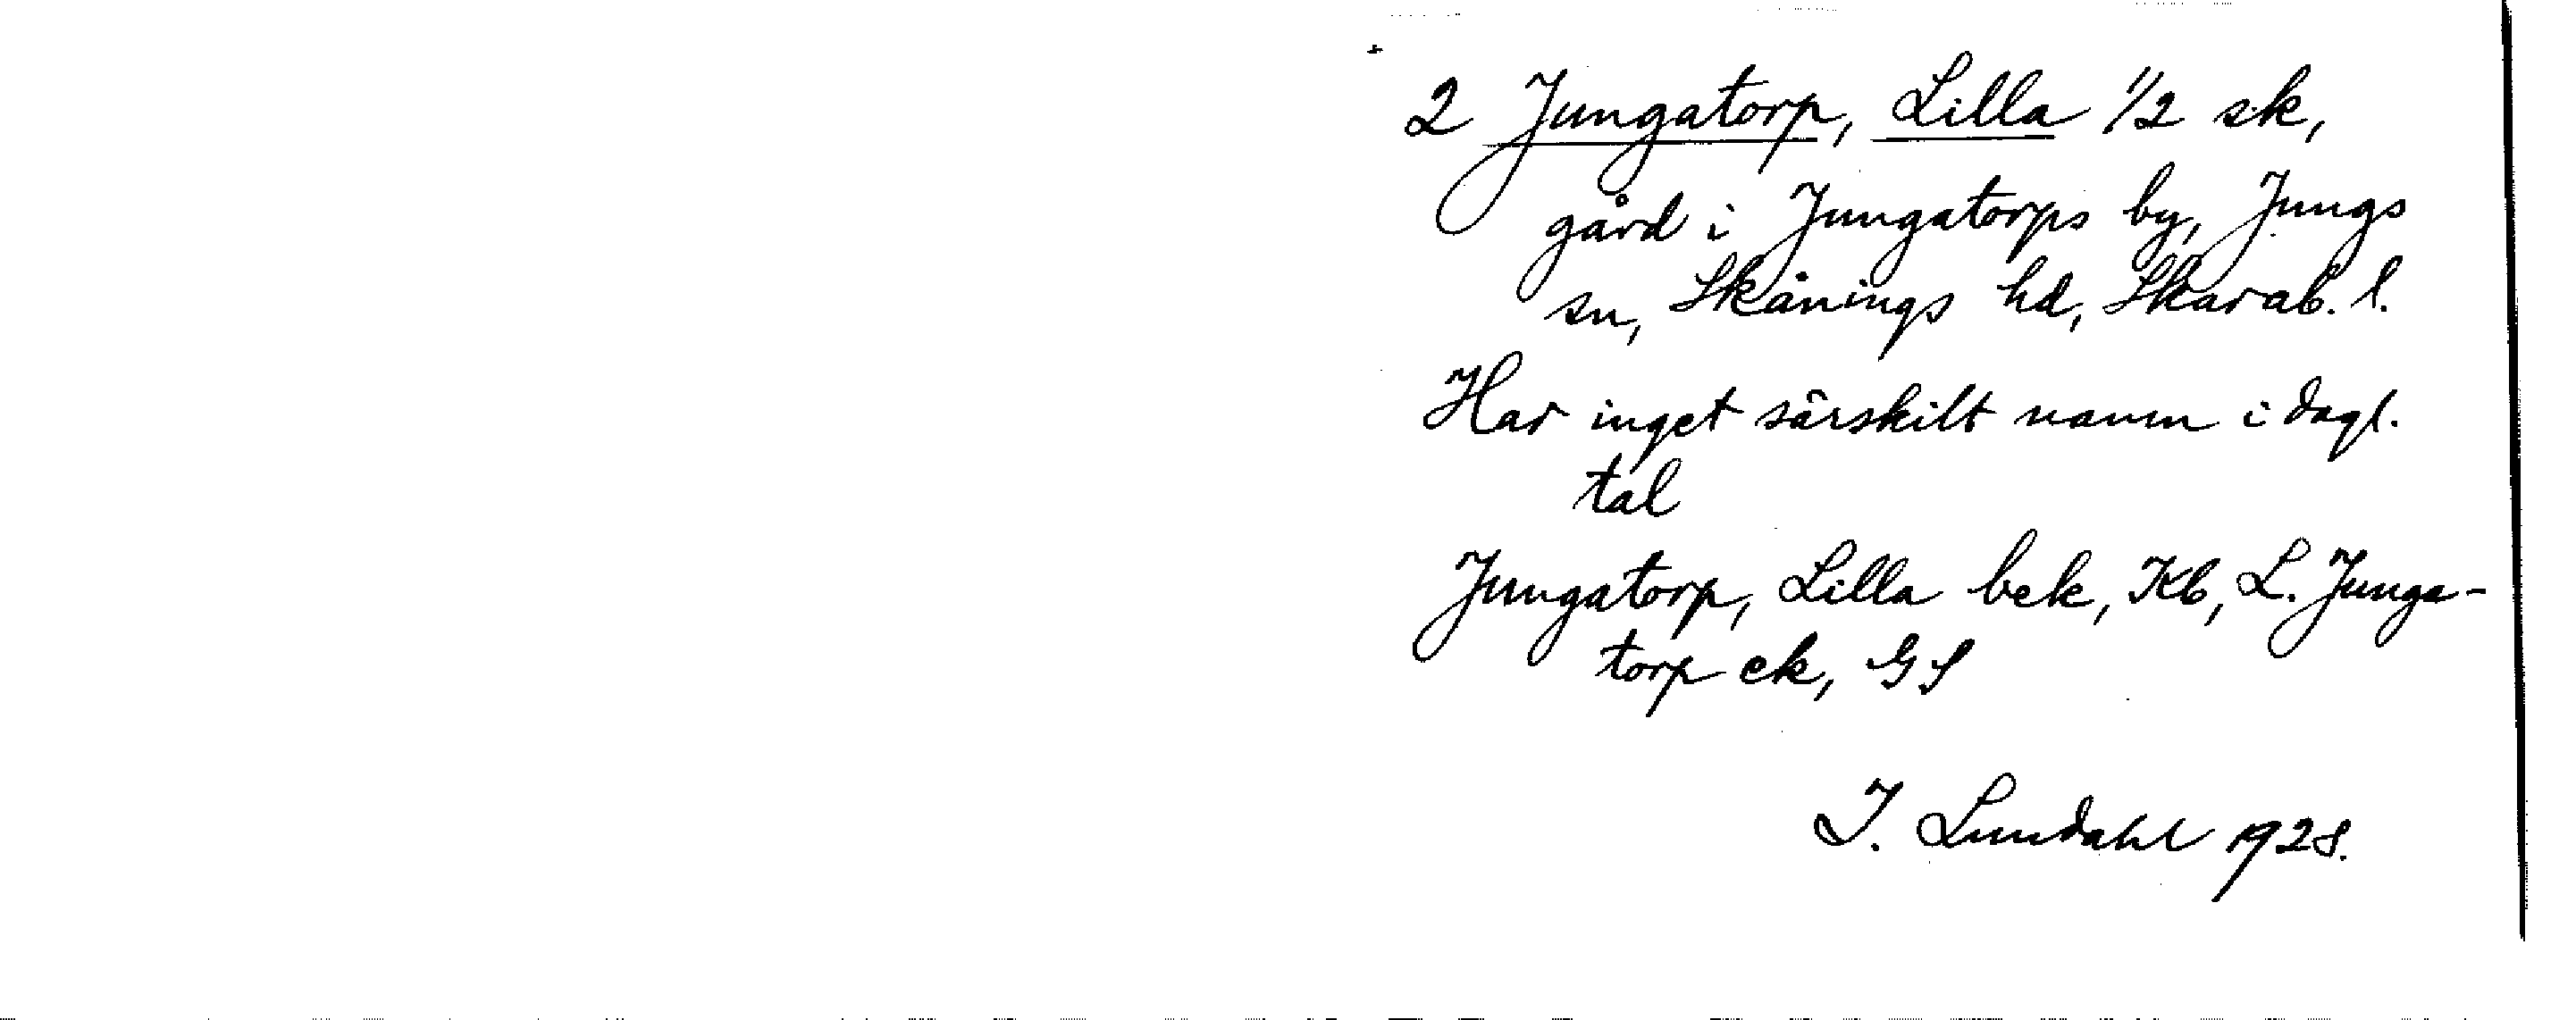 2 Jungatorp, Lilla 1/2 sk,
gård i Jungatorps by, Jungs
sn, Skånings hd, Skarab. l.
Har inget särskilt namn i dagl.
tal
Jungatorp, Lilla bek, Kb, L. Junga-
torp ek, GS
I. Lundahl 1928.